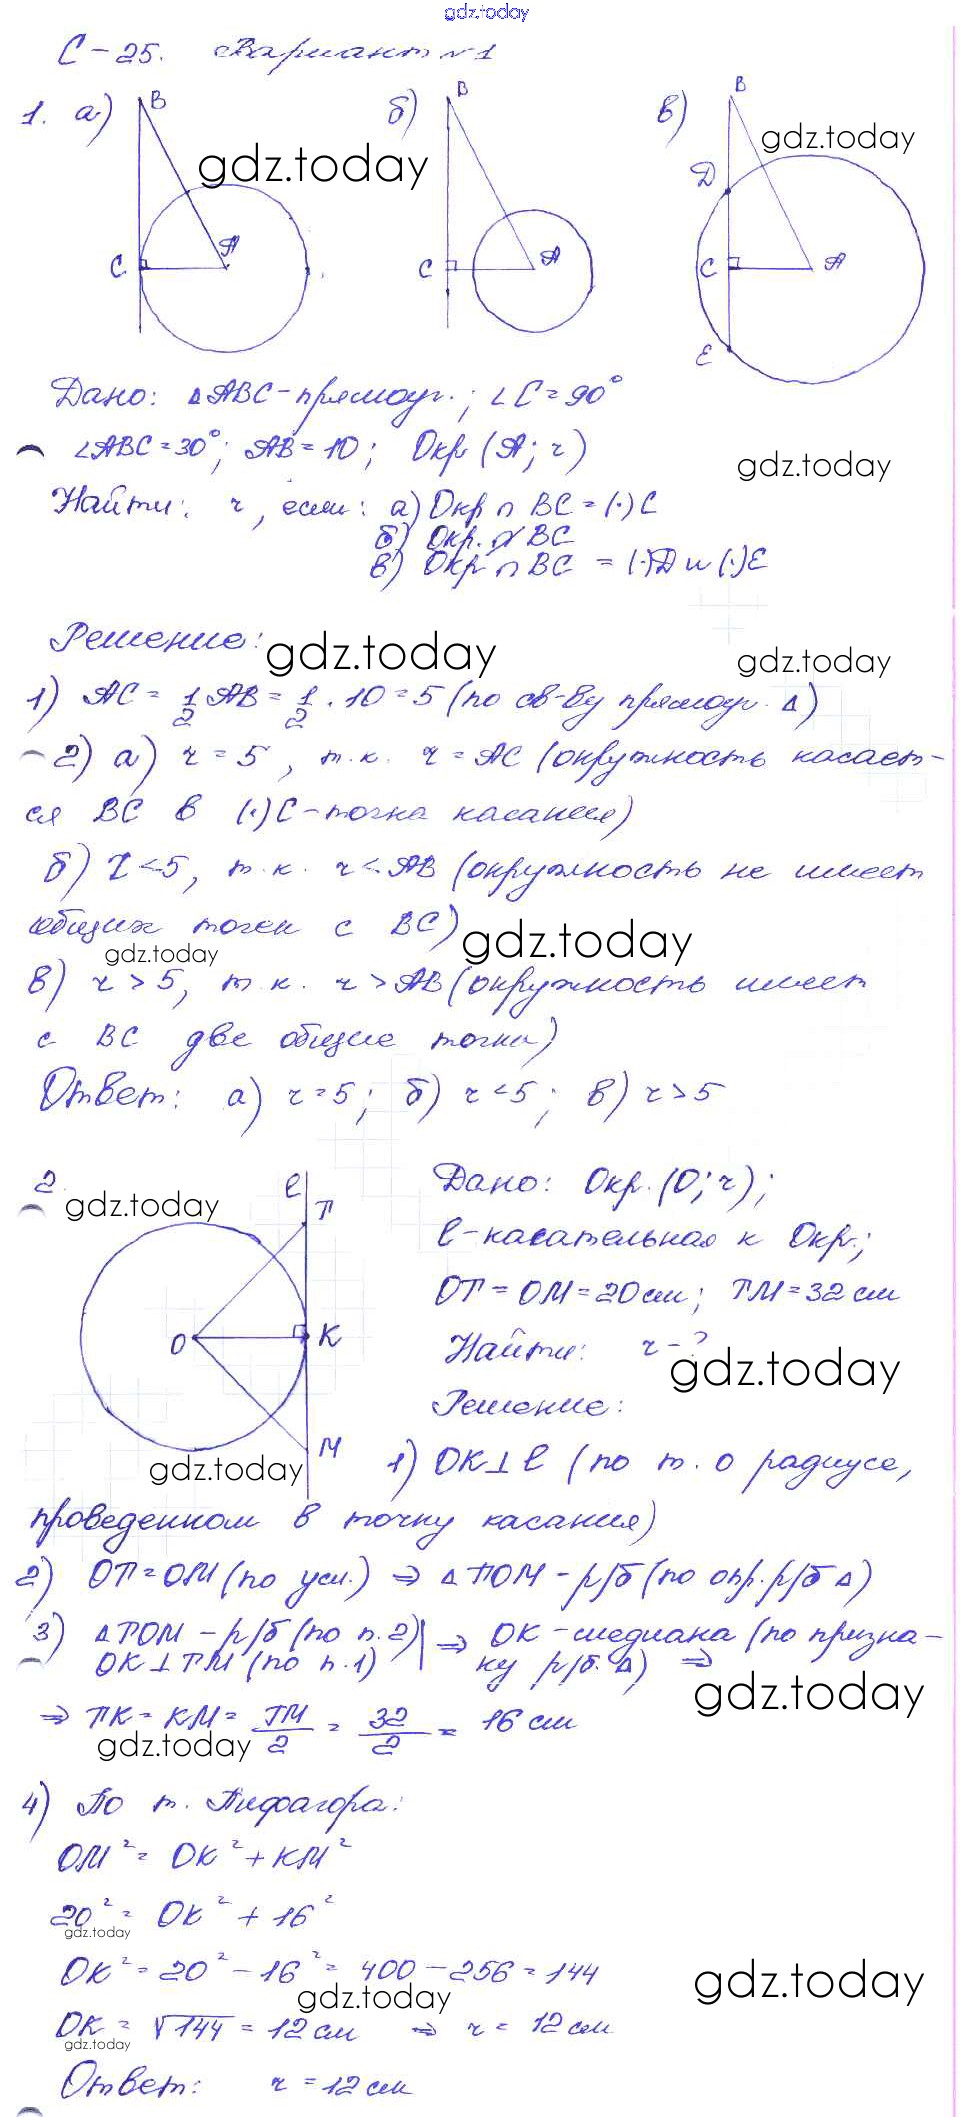 gdz.today
С-25. Вариант №1
1. а) B б) B в) B
gdz.today gdz.today
D
C A C A C A
E
Дано: △ABC-прямоуг.; ∠C=90°
∠ABC=30°; AB=10; Окр (A; r)
gdz.today
Найти: r, если: а) Окр ∩ BC = (·) C
б) Окр. ∩̸ BC
в) Окр ∩ BC = (·)D и (·)E
Решение:
gdz.today gdz.today
1) AC = 1/2 AB = 1/2 · 10 = 5 (по св-ву прямоуг. △)
2) а) r = 5, т.к. r = AC (окружность касает-
ся BC в (·) C-точка касания)
б) r < 5, т.к. r < AB (окружность не имеет
общих точек с BC)
gdz.today gdz.today
в) r > 5, т.к. r > AB (окружность имеет
с BC две общие точки)
Ответ: а) r = 5; б) r < 5; в) r > 5
2.
gdz.today
ℓ
T
O K
M
gdz.today
Дано: Окр. (O; r);
ℓ-касательная к Окр.;
OT = OM = 20 см; TM = 32 см
Найти: r - ?
gdz.today
Решение:
1) OK ⊥ ℓ (по т. о радиусе,
проведенном в точку касания)
2) OT = OM (по усл.) ⇒ △TOM - р/б (по опр. р/б △)
3) △TOM - р/б (по п.2) | ⇒ OK - медиана (по призна-
OK ⊥ TM (по п.1) | ку р/б. △) ⇒
gdz.today
⇒ TK = KM = TM/2 = 32/2 = 16 см
gdz.today
4) По т. Пифагора:
OM² = OK² + KM²
20² = OK² + 16²
gdz.today
OK² = 20² - 16² = 400 - 256 = 144
gdz.today gdz.today
OK = √144 = 12 см ⇒ r = 12 см
gdz.today
Ответ: r = 12 см